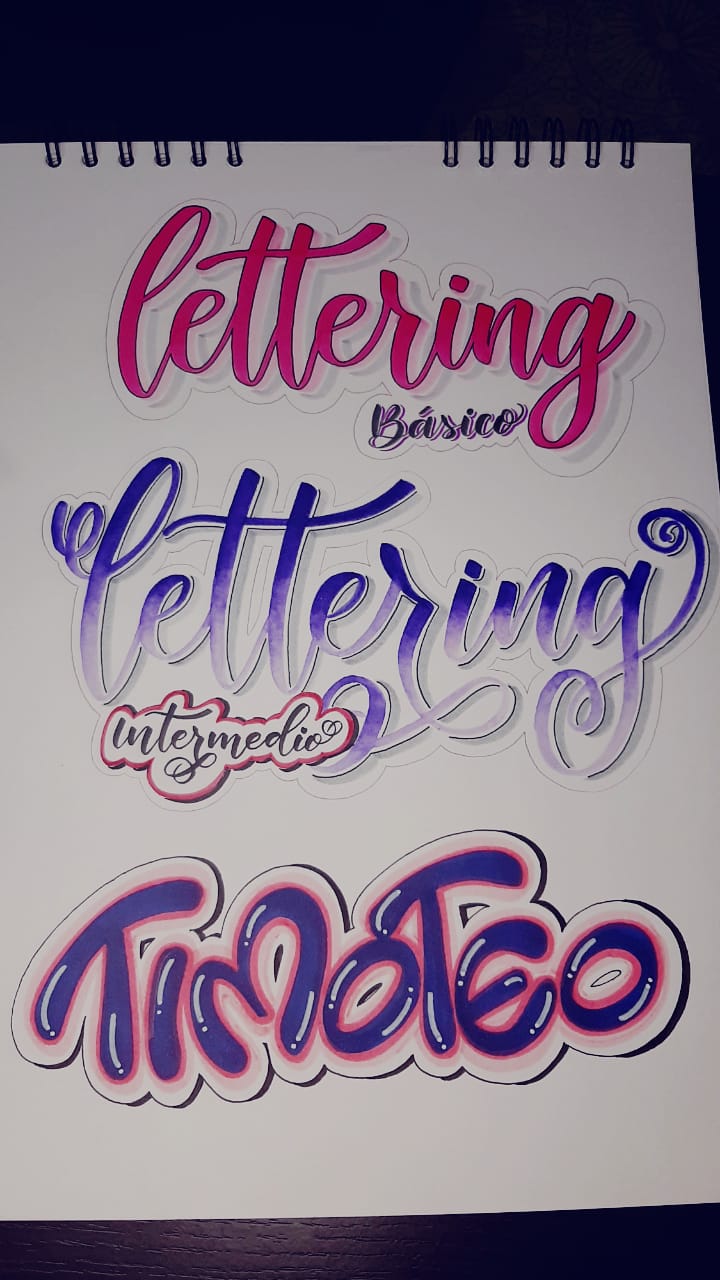 lettering
Básico
lettering
intermedio
TIMOTEO